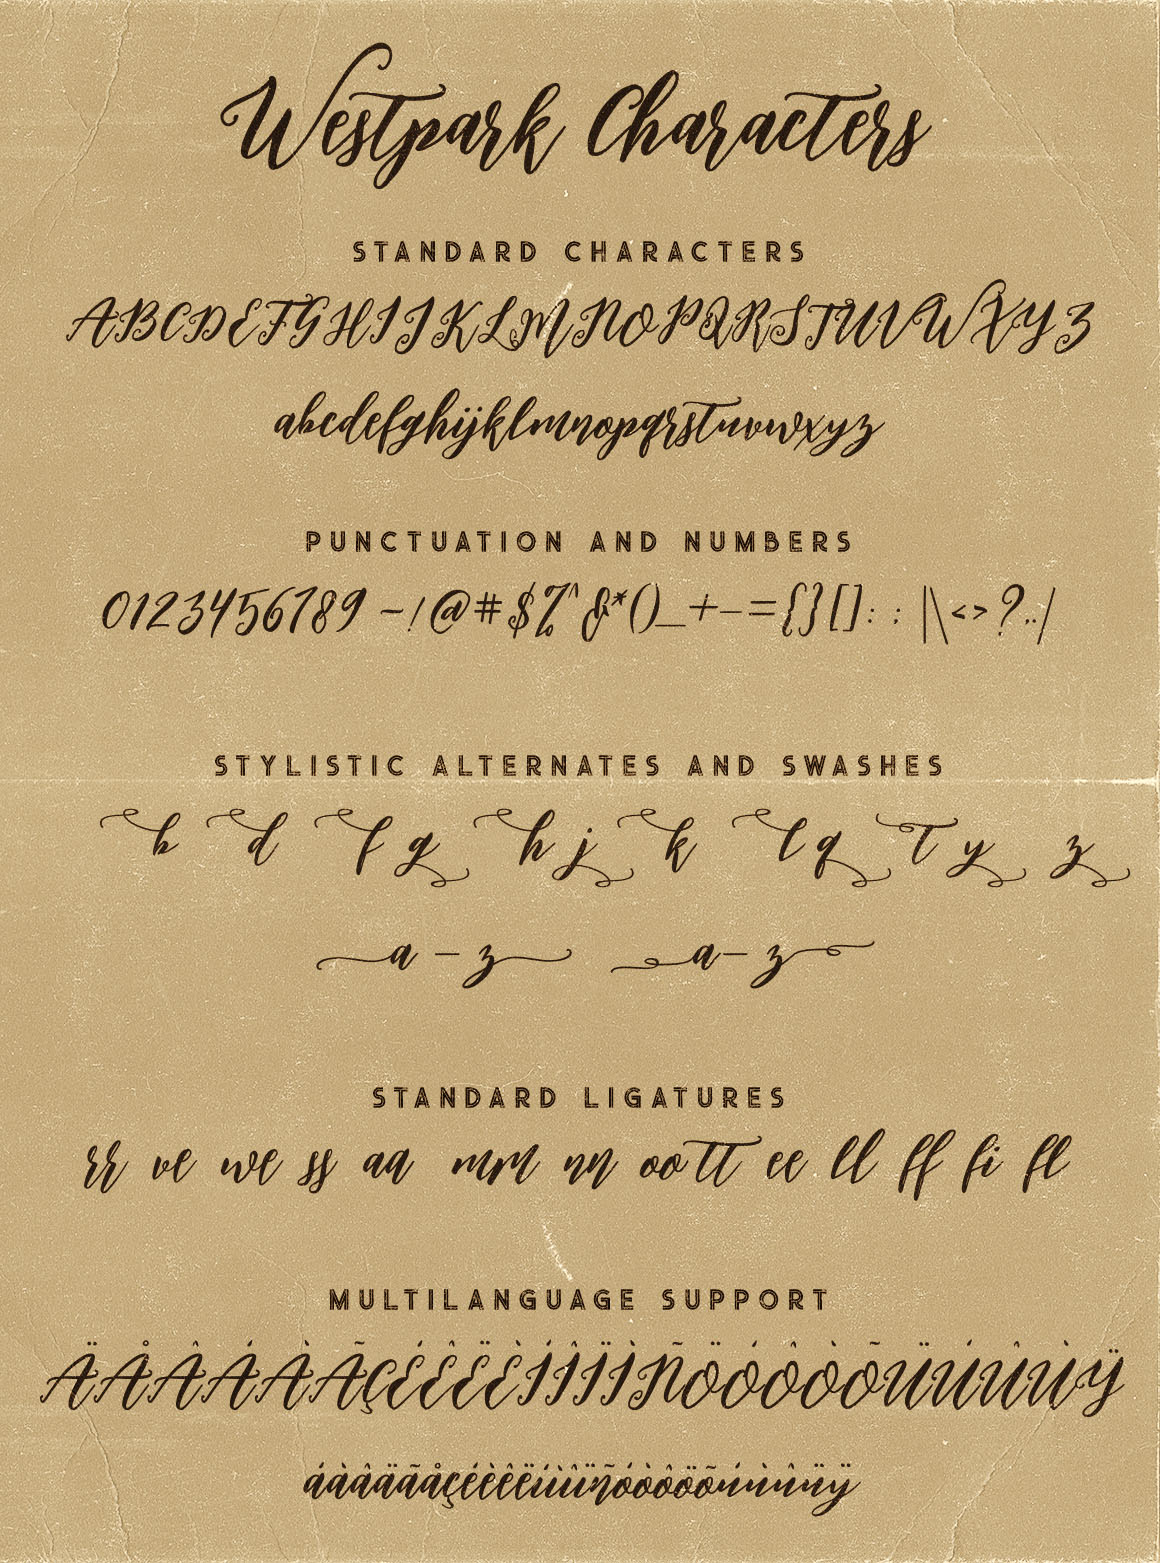 Westpark Characters
STANDARD CHARACTERS
ABCDEFGHIJKLMNOPQRSTUVWXYZ
abcdefghijklmnopqrstuvwxyz
PUNCTUATION AND NUMBERS
0123456789 ~!@#$%^&*()_+-={}[]: ; |\<>?,./
STYLISTIC ALTERNATES AND SWASHES
b d f g h j k l q t y z
a - z a - z
STANDARD LIGATURES
rr ve we ss aa mm nn oo tt ee ll ff fi fl
MULTILANGUAGE SUPPORT
ÄÅÂÁÀÃÇÉÊËÈÍÎÏÌÑÖÓÔÒÕÜÚÛÙŸ
áàâäãåçéèêëíìîïñóòôöõúùûüÿ